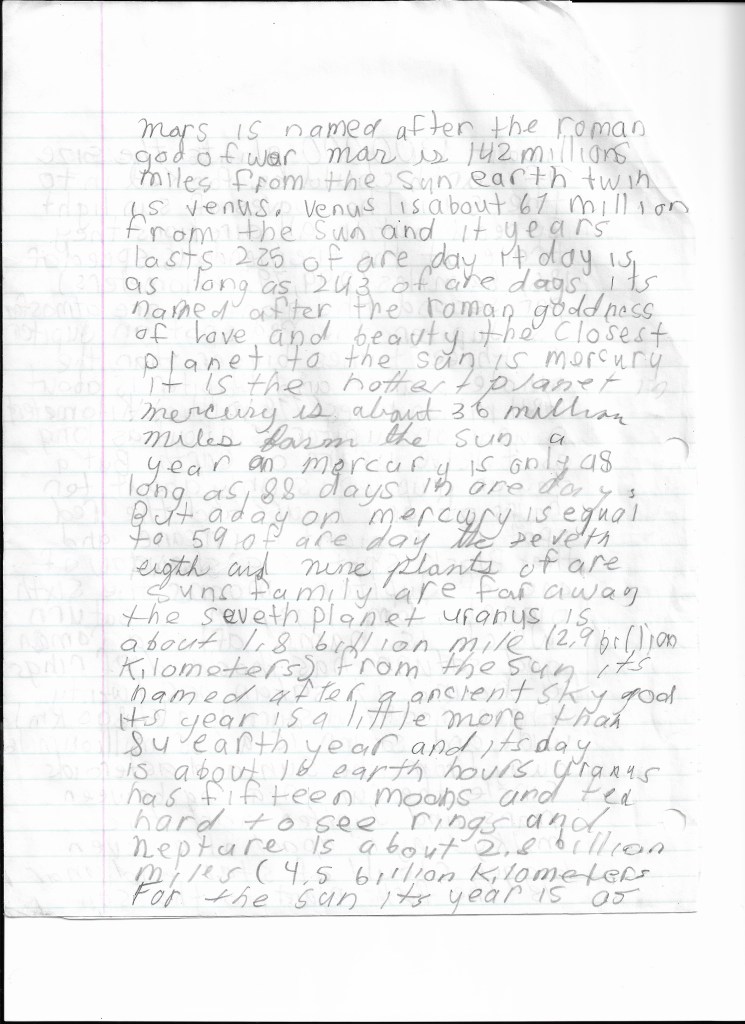 mars is named after the roman
god of war mar is 142 millions
miles from the sun earth twin
is venus. venus is about 67 million
from the sun and it years
lasts 225 of are day it day is
as long as 243 of are days its
named after the roman goddness
of love and beauty the closest
planet to the sun is mercury
it is the hottest planet
mercury is about 36 million
miles farm the sun a
year on mercury is only as
long as 88 days in are days
But a day on mercury is equal
to 59 of are day the seveth
eigth and nine plants of are
suns family are far away
the seveth planet uranus is
about 1.8 billion mile (2.9 billion
kilometers) from the sun its
named after a ancient sky god
its year is a little more than
84 earth year and its day
is about 16 earth hours uranus
has fifteen moons and ten
hard to see rings and
nepture is about 2.8 billion
miles (4.5 billion kilometers
for the sun its year is as